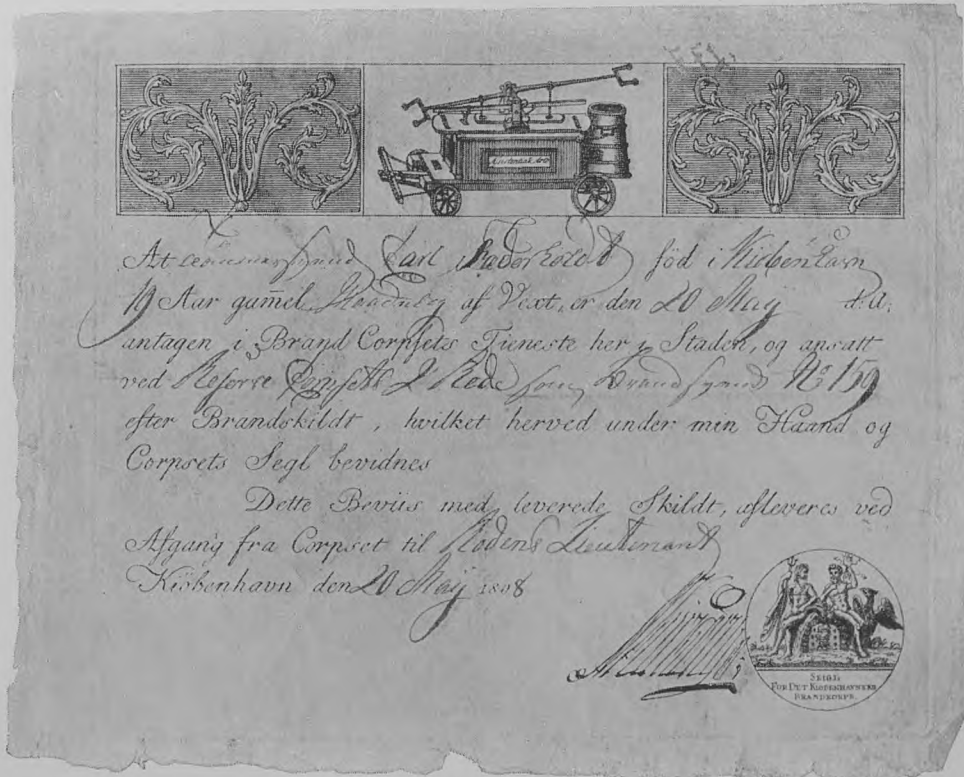 At Carl født i Kiöbenhavn
19 Aar gam̄el af Vext, er den 20 May d: A:
antagen i Brand Corpsets Tieneste her i Staden, og ansatt
ved Reserve Corpsets 2 Rode som Brandsvend No 159
efter Brandskildt, hvilket herved under min Haand og
Corpsets Segl bevidnes
Dette Beviis med leverede Skildt, afleveres ved
Afgang fra Corpset til Rodens Lieutenant
Kiöbenhavn den 20 May 1808
SEIGL
FOR DET KIOBENHAVNSKE
BRANDCORPS.